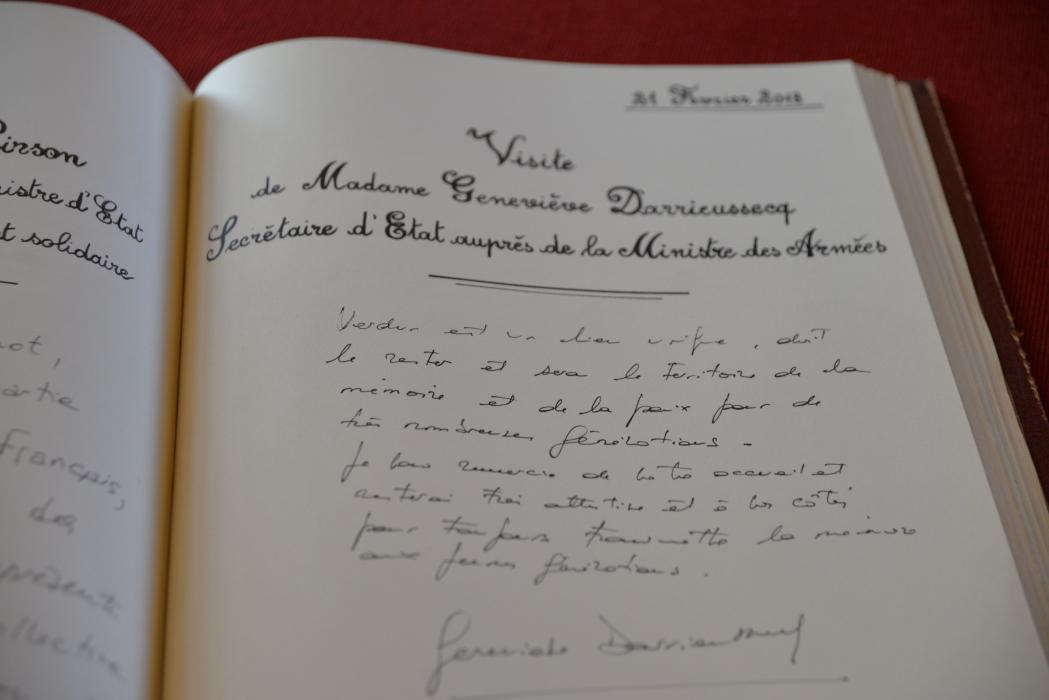 irson
istre d'Etat
t solidaire
ot,
artie
Français,
des
présente
llective
21 Février 2018
Visite
de Madame Geneviève Darrieussecq
Secrétaire d'Etat auprès de la Ministre des Armées
Verdun est un lieu unique, doit
le rester et sera le territoire de la
mémoire et de la paix pour de
très nombreuses générations.
Je vous remercie de votre accueil et
resterai très attentive et à vos côtés
pour toujours transmettre la mémoire
aux jeunes générations.
Geneviève Darrieussecq